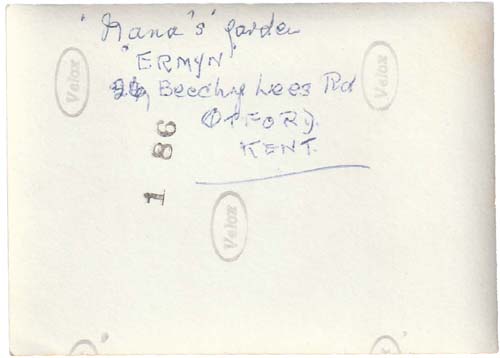 'Nana's' garden
"ERMYN"
26, Beechy Lees Rd
OTFORD.
KENT.
186
Velox
Velox
Velox